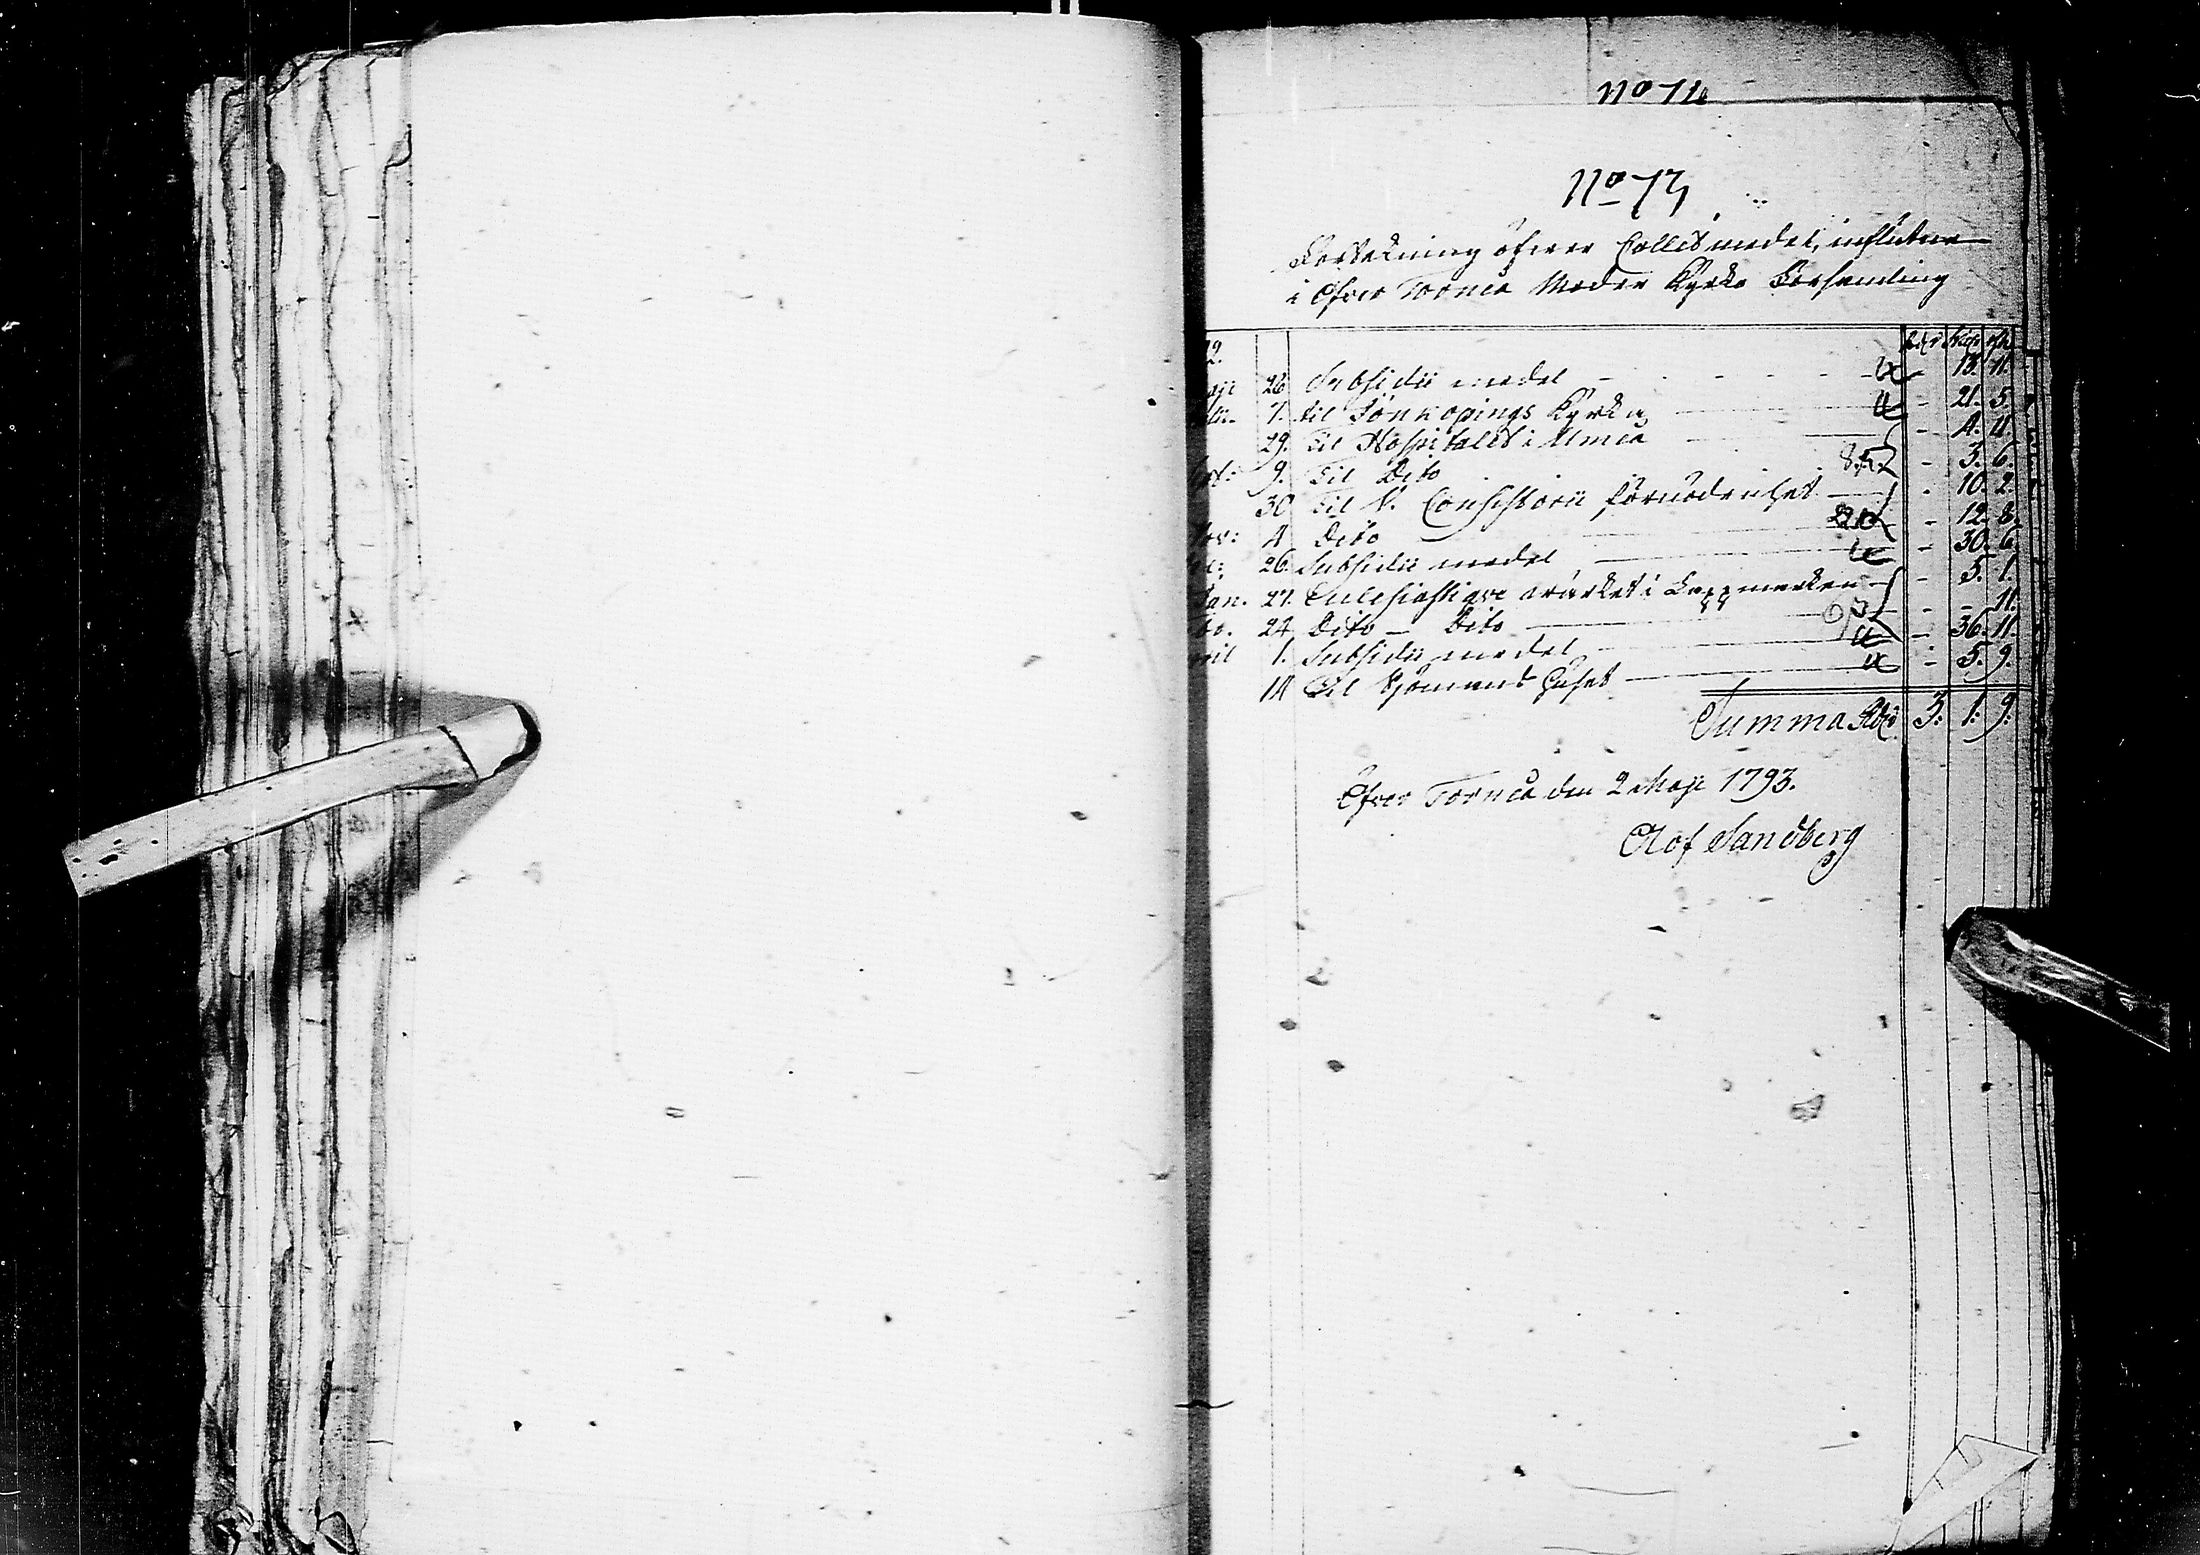 No 74
No 73
Förtekning öfwer Collect medel, influtne
i Öfver Torneå Moder Kyrko Församling
Rdr Sk: rst
26 Subsidii medel - 13. 11.
7. til Jönkopings Kyrka - 21. 5.
29. Til Hospitalet i Umeå - 4. 11.
9. Til Dito 8.5. - 3. 6.
30 Til V. Consistorii förnödenhet - 10. 2.
4 Dito - 12. 8.
26. Subsidii medel - 30. 6
Jan. 27. Ecclesiastique wärket i Lappmarken - 5. 1.
24 Dito - Dito - - 11.
1. Subsidii medel - 36. 11.
14 Til Sjömans Huset - 5. 9.
Summa Rdr 3: 1: 9:
Öfver Torneå den 2 Maji 1793.
Olof Sandberg